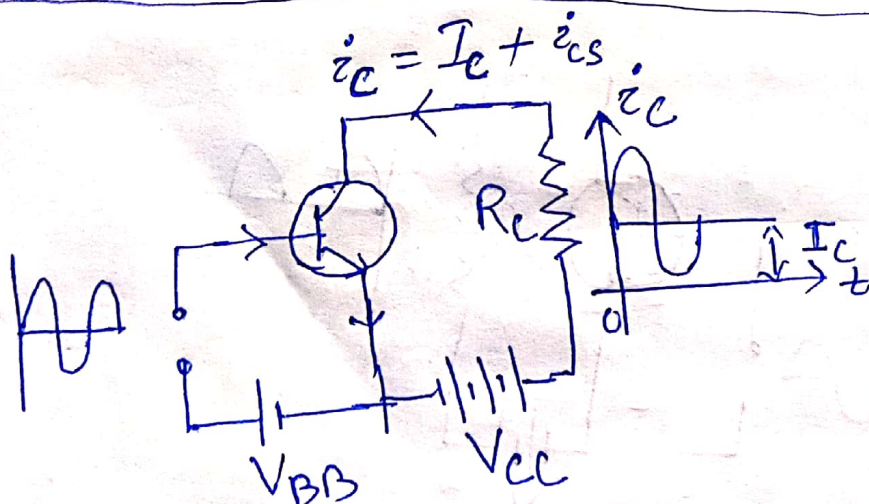 i_C = I_C + i_CS
i_C
R_C
I_C
t
0
V_BB
V_CC